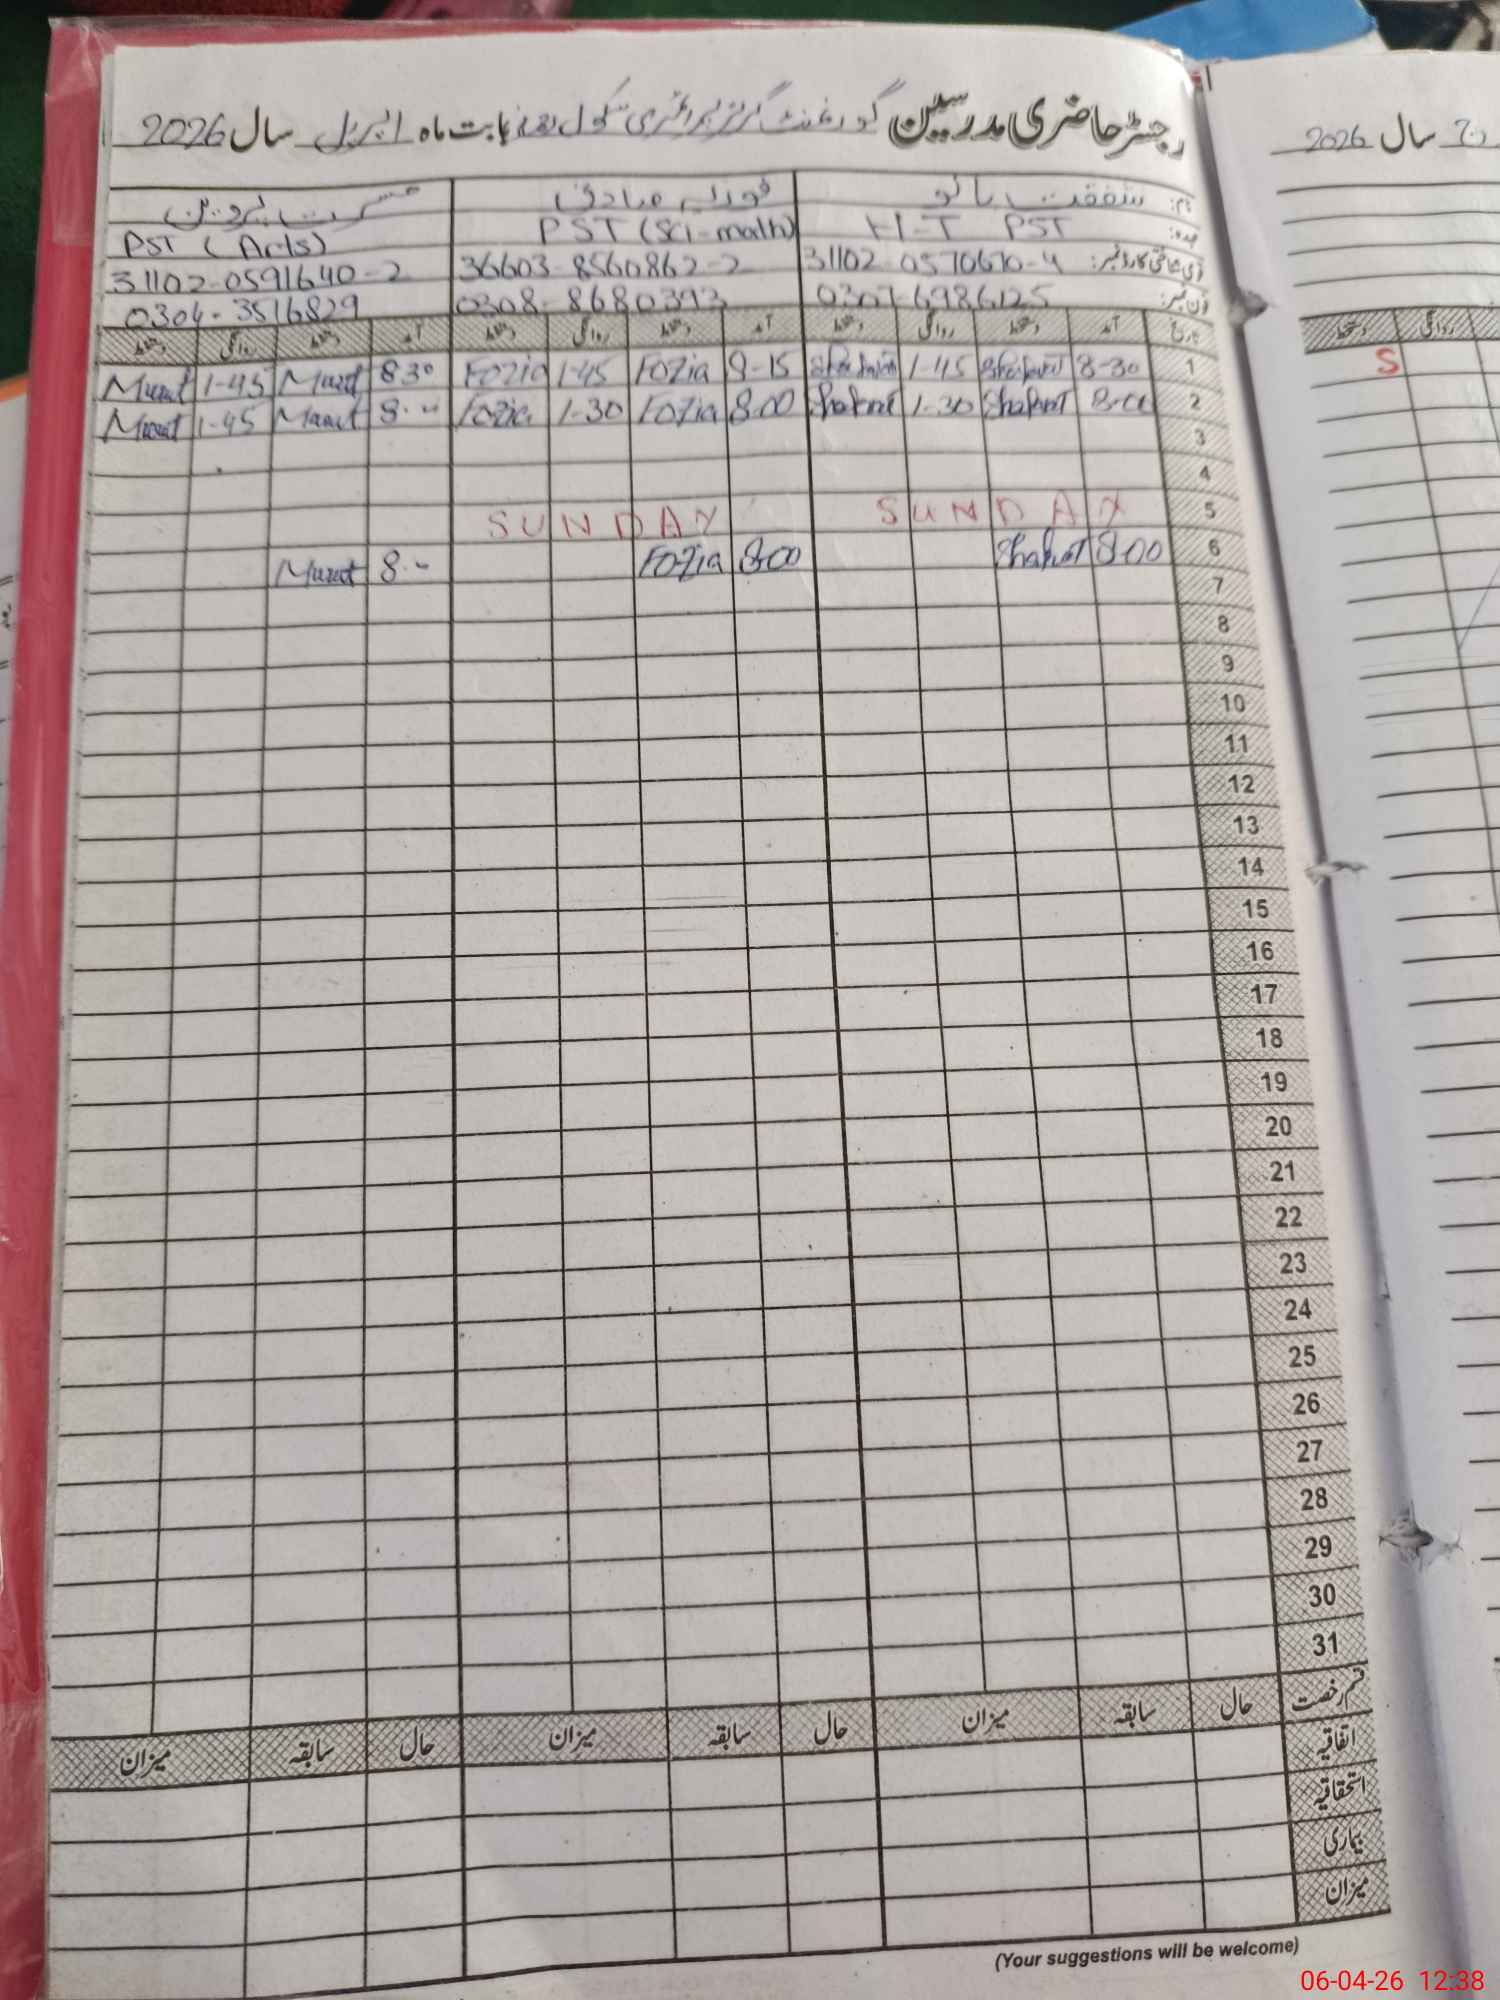 رجسٹر حاضری مدرسین گورنمنٹ گرلز پرائمری سکول بابت ماہ اپریل سال 2026
نام: شفقت بانو فوزیہ صادق مسرت پروین
عہدہ: H-T PST PST (Sci-math) PST (Arts)
قومی شناختی کارڈ نمبر: 31102-0570670-4 36603-8560862-2 31102-0591640-2
فون نمبر: 0307-6986125 0308-8680393 0304-3516829
تاریخ آمد دستخط روانگی دستخط آمد دستخط روانگی دستخط آمد دستخط روانگی دستخط
1 8-30 Shafqat 1-45 8-15 Fozia 1-45 Fozia 830 Musrat 1-45 Musrat
2 8-00 Shafqat 1-30 Shafqat 8-00 Fozia 1-30 Fozia 8-00 Musrat 1-45 Musrat
3
4
5 SUNDAY SUNDAY
6 8-00 Shafqat 8-00 Fozia 8-00 Musrat
7
8
9
10
11
12
13
14
15
16
17
18
19
20
21
22
23
24
25
26
27
28
29
30
31
قسم رخصت حال سابقہ میزان حال سابقہ میزان حال سابقہ میزان
اتفاقیہ
استحقاقیہ
بیماری
میزان
(Your suggestions will be welcome)
سال 2026
روانگی دستخط
S
06-04-26 12:38